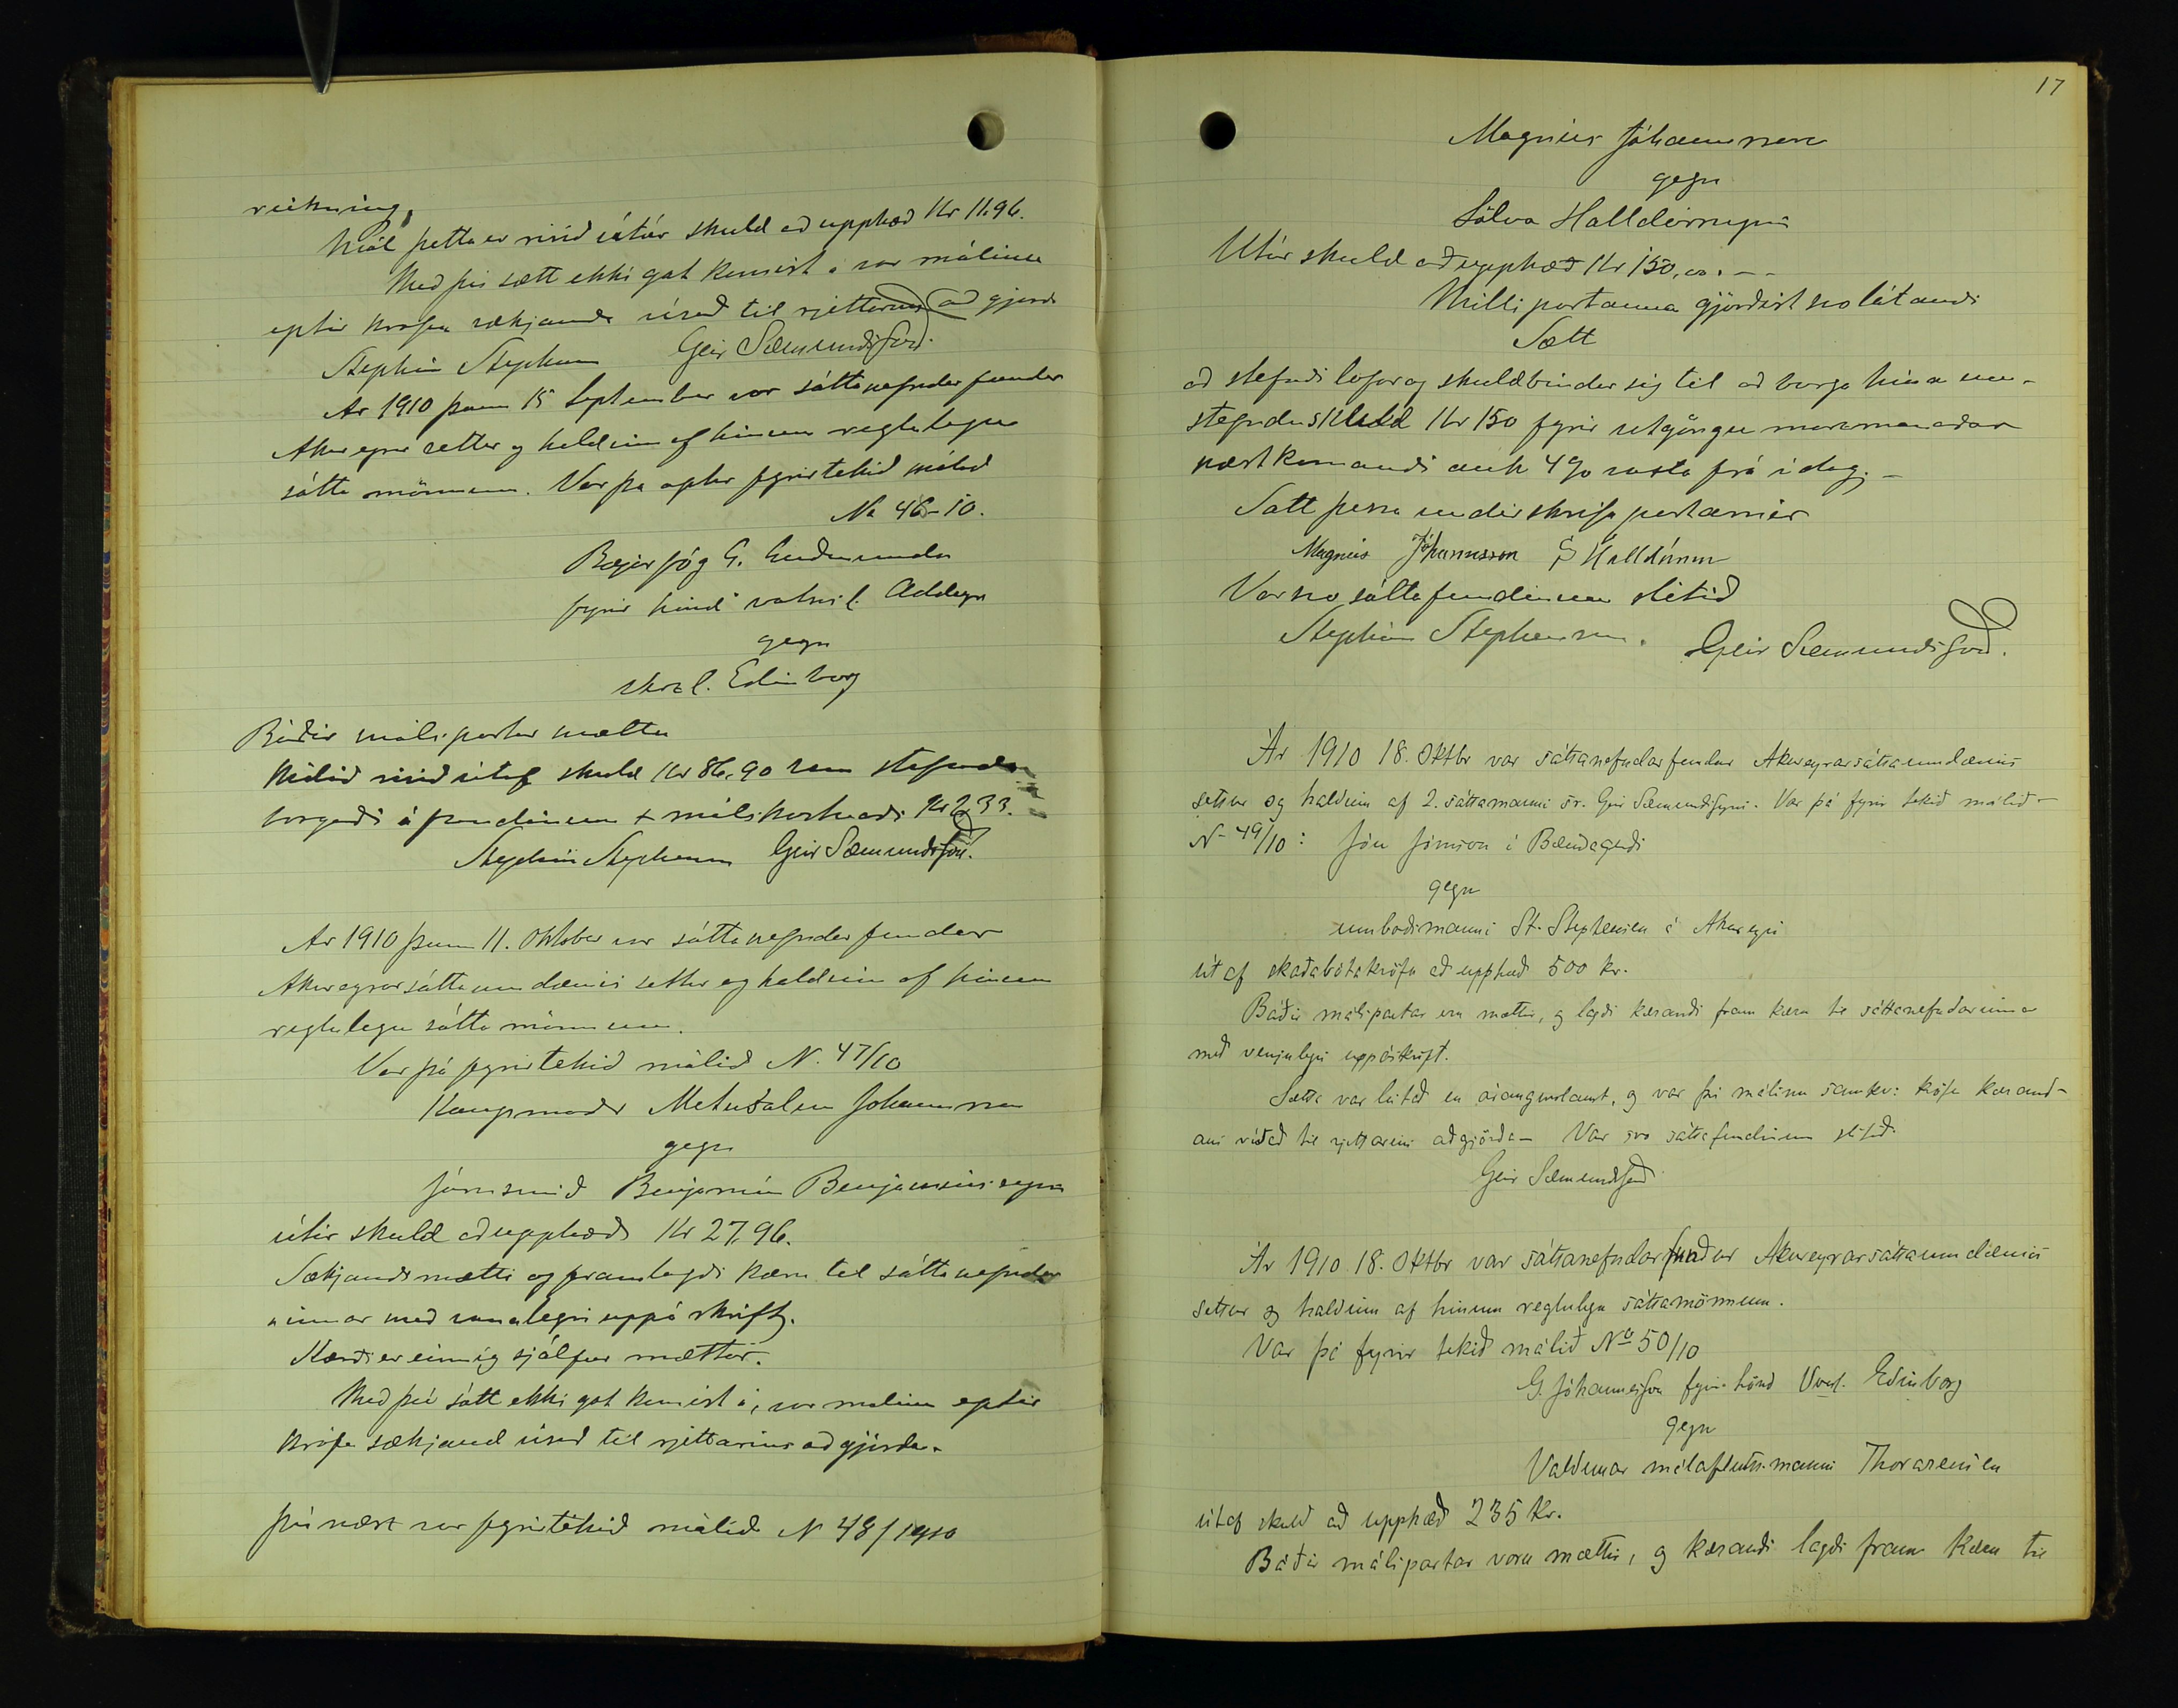 reikning.
Mál þetta er risið útúr skuld að upphæð Kr 11.96.
Með því sætt ekki gat komist á var málinu
eptir kröfu sækjanda vísað til rjettarins aðgjörða
Stephán Stephensen Geir Sæmundsson.
Ár 1910 þann 15 September var sáttanefndarfundur
Akureyrar settur og haldinn af hinum reglulegu
sáttamönnum. Var þá aptur fyrirtekið málið
No 46-10.
Bæjarfóg G. Guðmundss
fyrir hönd vatnsl. Oddeyr
gegn
verzl. Edinborg
Báðir málspartar mættu
Málið risið útaf skuld Kr 86,90 sem stefndi
borgaði á fundinum + málskostnaði Kr 2.33.
Stephán Stephensen Geir Sæmundsson.
Ár 1910 þann 11. Oktober var sáttanefndarfundur
Akureyrarsáttaumdæmis settur og haldinn af hinum
reglulegu sáttamönnum.
Var þá fyrirtekið málið N. 47/10
Kaupmaður Metúsalem Johannsson
gegn
járnsmið Benjamín Benjamínssyni
útúr skuld að upphæð Kr 27.96.
Sækjandi mætti og framlagði kæru til sáttanefndar
innar með vanalegri uppáskrift.
Kærði er einnig sjálfur mættur.
Með því sátt ekki gat komist á, var málinu eptir
kröfu sækjand vísað til rjettarins aðgjörða.
Því næst var fyrirtekið málið N 48/1910
17
Magnús Jóhannsson
gegn
Sölva Halldórssyni
Útúr skuld að upphæð Kr 150,00.--
Milli partanna gjörðist svolátandi
Sætt
að stefndi lofar og skuldbindur sig til að borga hina um-
stefndu skuld Kr 150 fyrir útgöngu marzmánaðar
næstkomandi auk 4% vaxta frá í dag.-
Sátt þessa undirskrifa partarnir
Magnús Jóhannsson S Halldórsson
Var svo sáttafundinum slitið
Stephán Stephensen. Geir Sæmundsson.
Ár 1910 18. Oktbr var sáttanefndarfundur Akureyrarsáttaumdæmis
settur og haldinn af 2. sáttamanni sr. Geir Sæmundssyni. Var þá fyrir tekið málið-
N- 49/10: Jón Jónsson í Bændagerði
gegn
umboðsmanni St. Stephensen á Akureyri
út af skaðabótakröfu að upphæð 500 kr.
Báðir málspartar eru mættir, og lagði kærandi fram kæru til sáttanefndarinnar
með venjulegri uppáskrift.
Sætta var leitað en árangurslaust, og var því málinu samkv: kröfu kærand-
ans vísað til rjettarins aðgjörða- Var svo sáttafundinum slitið.
Geir Sæmundsson
Ár 1910 18. Oktbr var sáttanefndarfundur Akureyrarsáttaumdæmis
settur og haldinn af hinum reglulegu sáttamönnum.
Var þá fyrir tekið málið No 50/10
G. Jóhannesson fyrir hönd Verzl. Edinborg
gegn
Valdimar málaflutn.manni Thorarensen
útaf skuld að upphæð 235 Kr.
Báðir málspartar voru mættir, og kærandi lagði fram kæru til